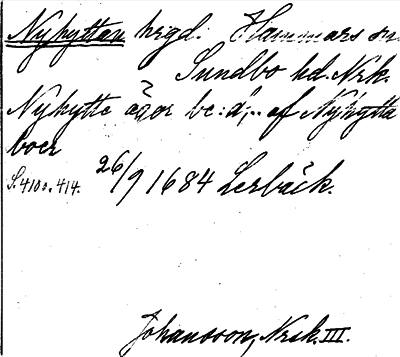 Nyhyttan hrgd. Hammars sn.
Sundbo hd. Nrk.
Nyhytte ägor be:d;.. af Nyhytta
boer
S. 4100. 414. 26/9 1684 Lerbäck.
Johansson, Nrk. III.